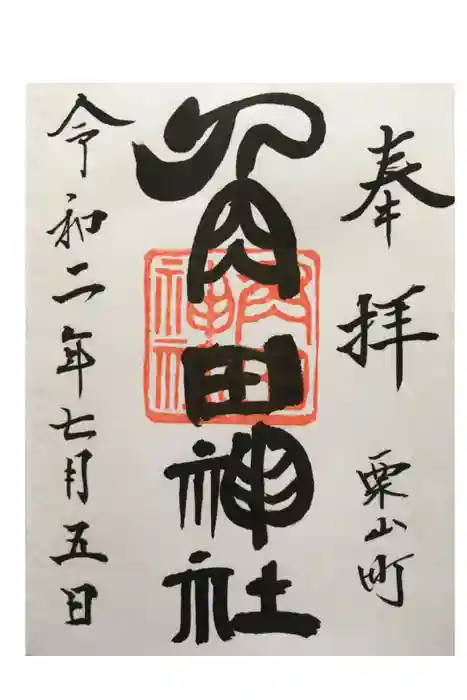 奉拝　栗山町
角田神社
令和二年七月五日
角田
神社